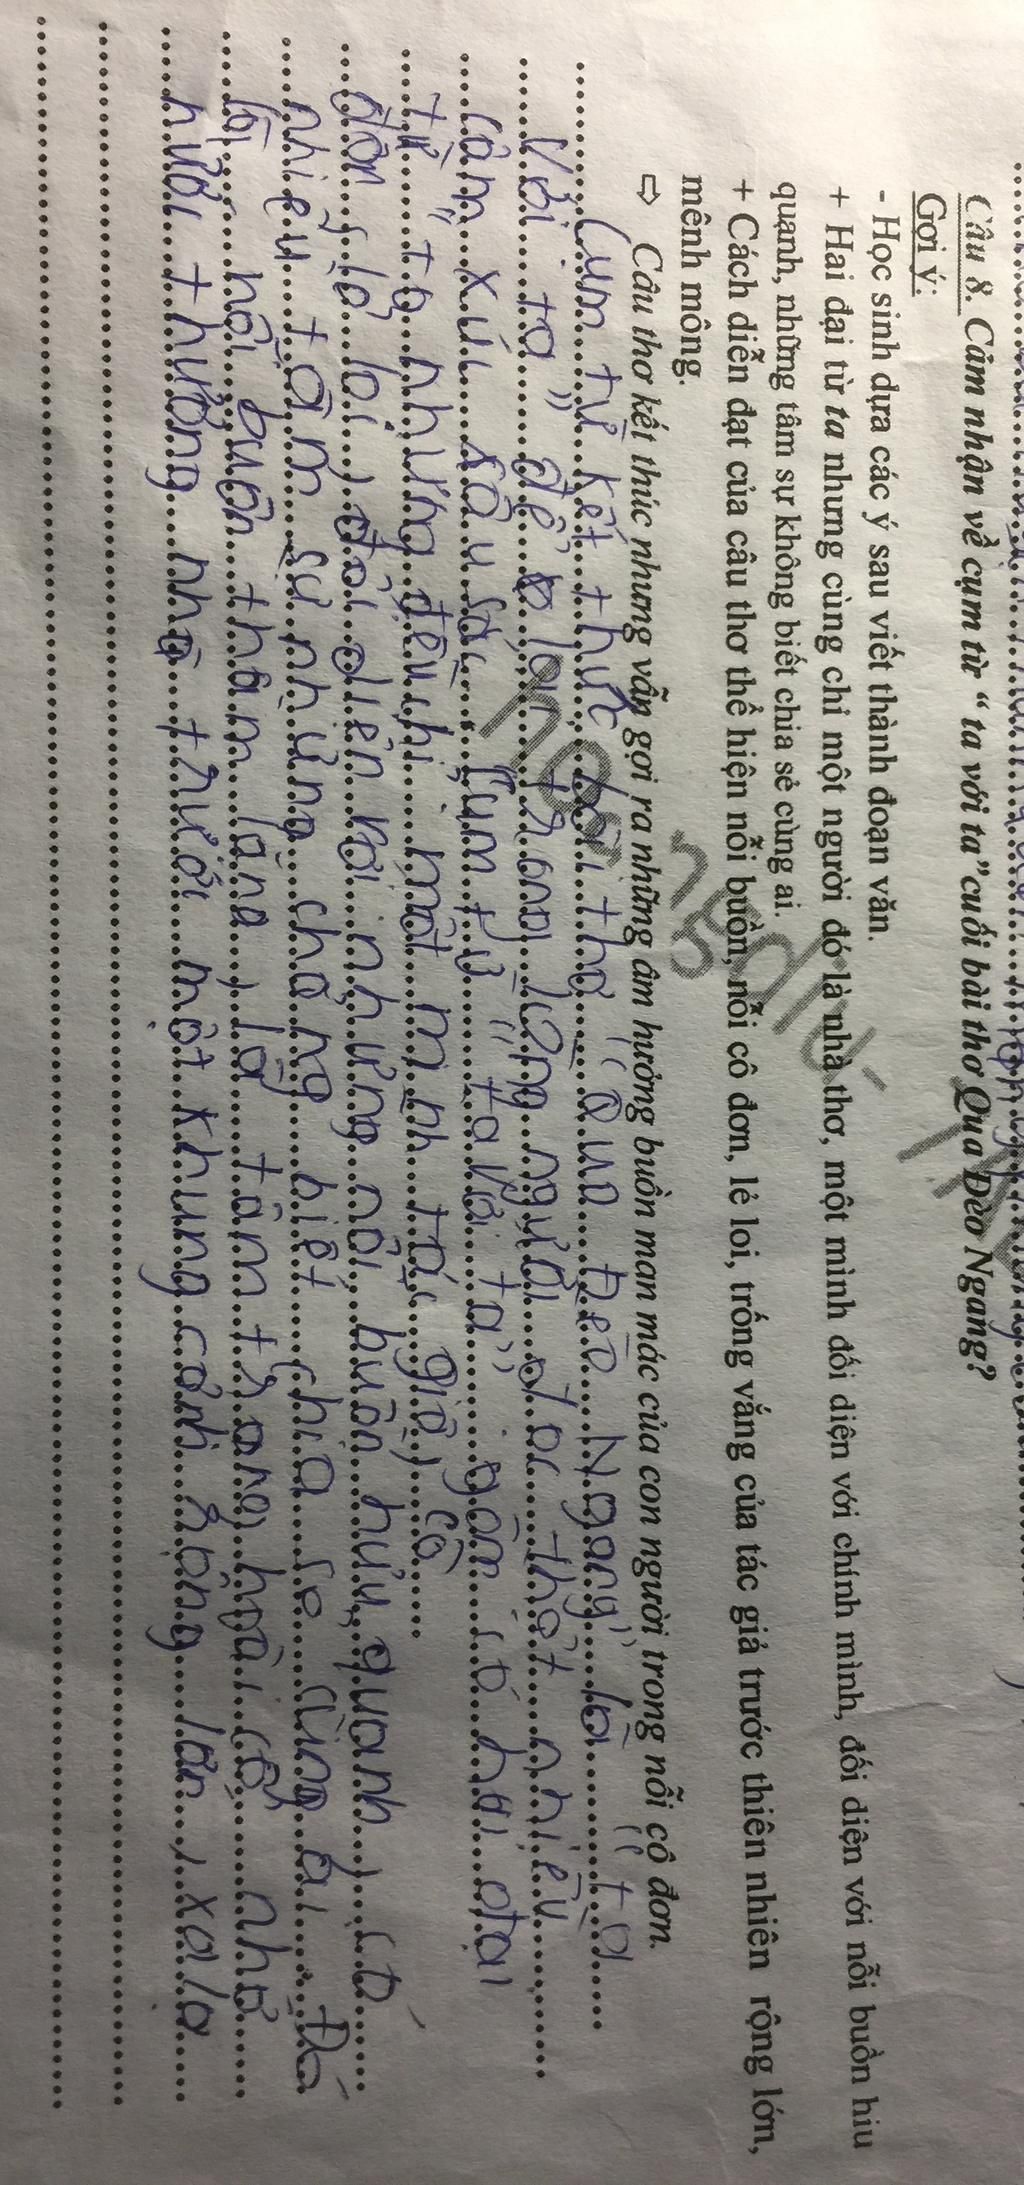 Câu 8. Cảm nhận về cụm từ “ta với ta” cuối bài thơ Qua Đèo Ngang?
Gợi ý:
- Học sinh dựa các ý sau viết thành đoạn văn.
+ Hai đại từ ta nhưng cùng chỉ một người đó là nhà thơ, một mình đối diện với chính mình, đối diện với nỗi buồn hiu
quạnh, những tâm sự không biết chia sẻ cùng ai.
+ Cách diễn đạt của câu thơ thể hiện nỗi buồn, nỗi cô đơn, lẻ loi, trống vắng của tác giả trước thiên nhiên rộng lớn,
mênh mông.
⇨ Câu thơ kết thúc nhưng vẫn gợi ra những âm hưởng buồn man mác của con người trong nỗi cô đơn.
Cụm từ kết thúc bài thơ "Qua Đèo Ngang" là "ta
với ta" để lại trong lòng người đọc thật nhiều
cảm xúc sâu sắc. Cụm từ "ta với ta" gồm có hai đại
từ ta nhưng đều chỉ một mình tác giả, cô
đơn, lẻ loi, đối diện với những nỗi buồn hiu quạnh, có
nhiều tâm sự nhưng chẳng biết chia sẻ cùng ai. Đó
là nỗi buồn thầm lặng, là tâm trạng hoài cổ, nhớ
nước thương nhà trước một khung cảnh rộng lớn, xa lạ